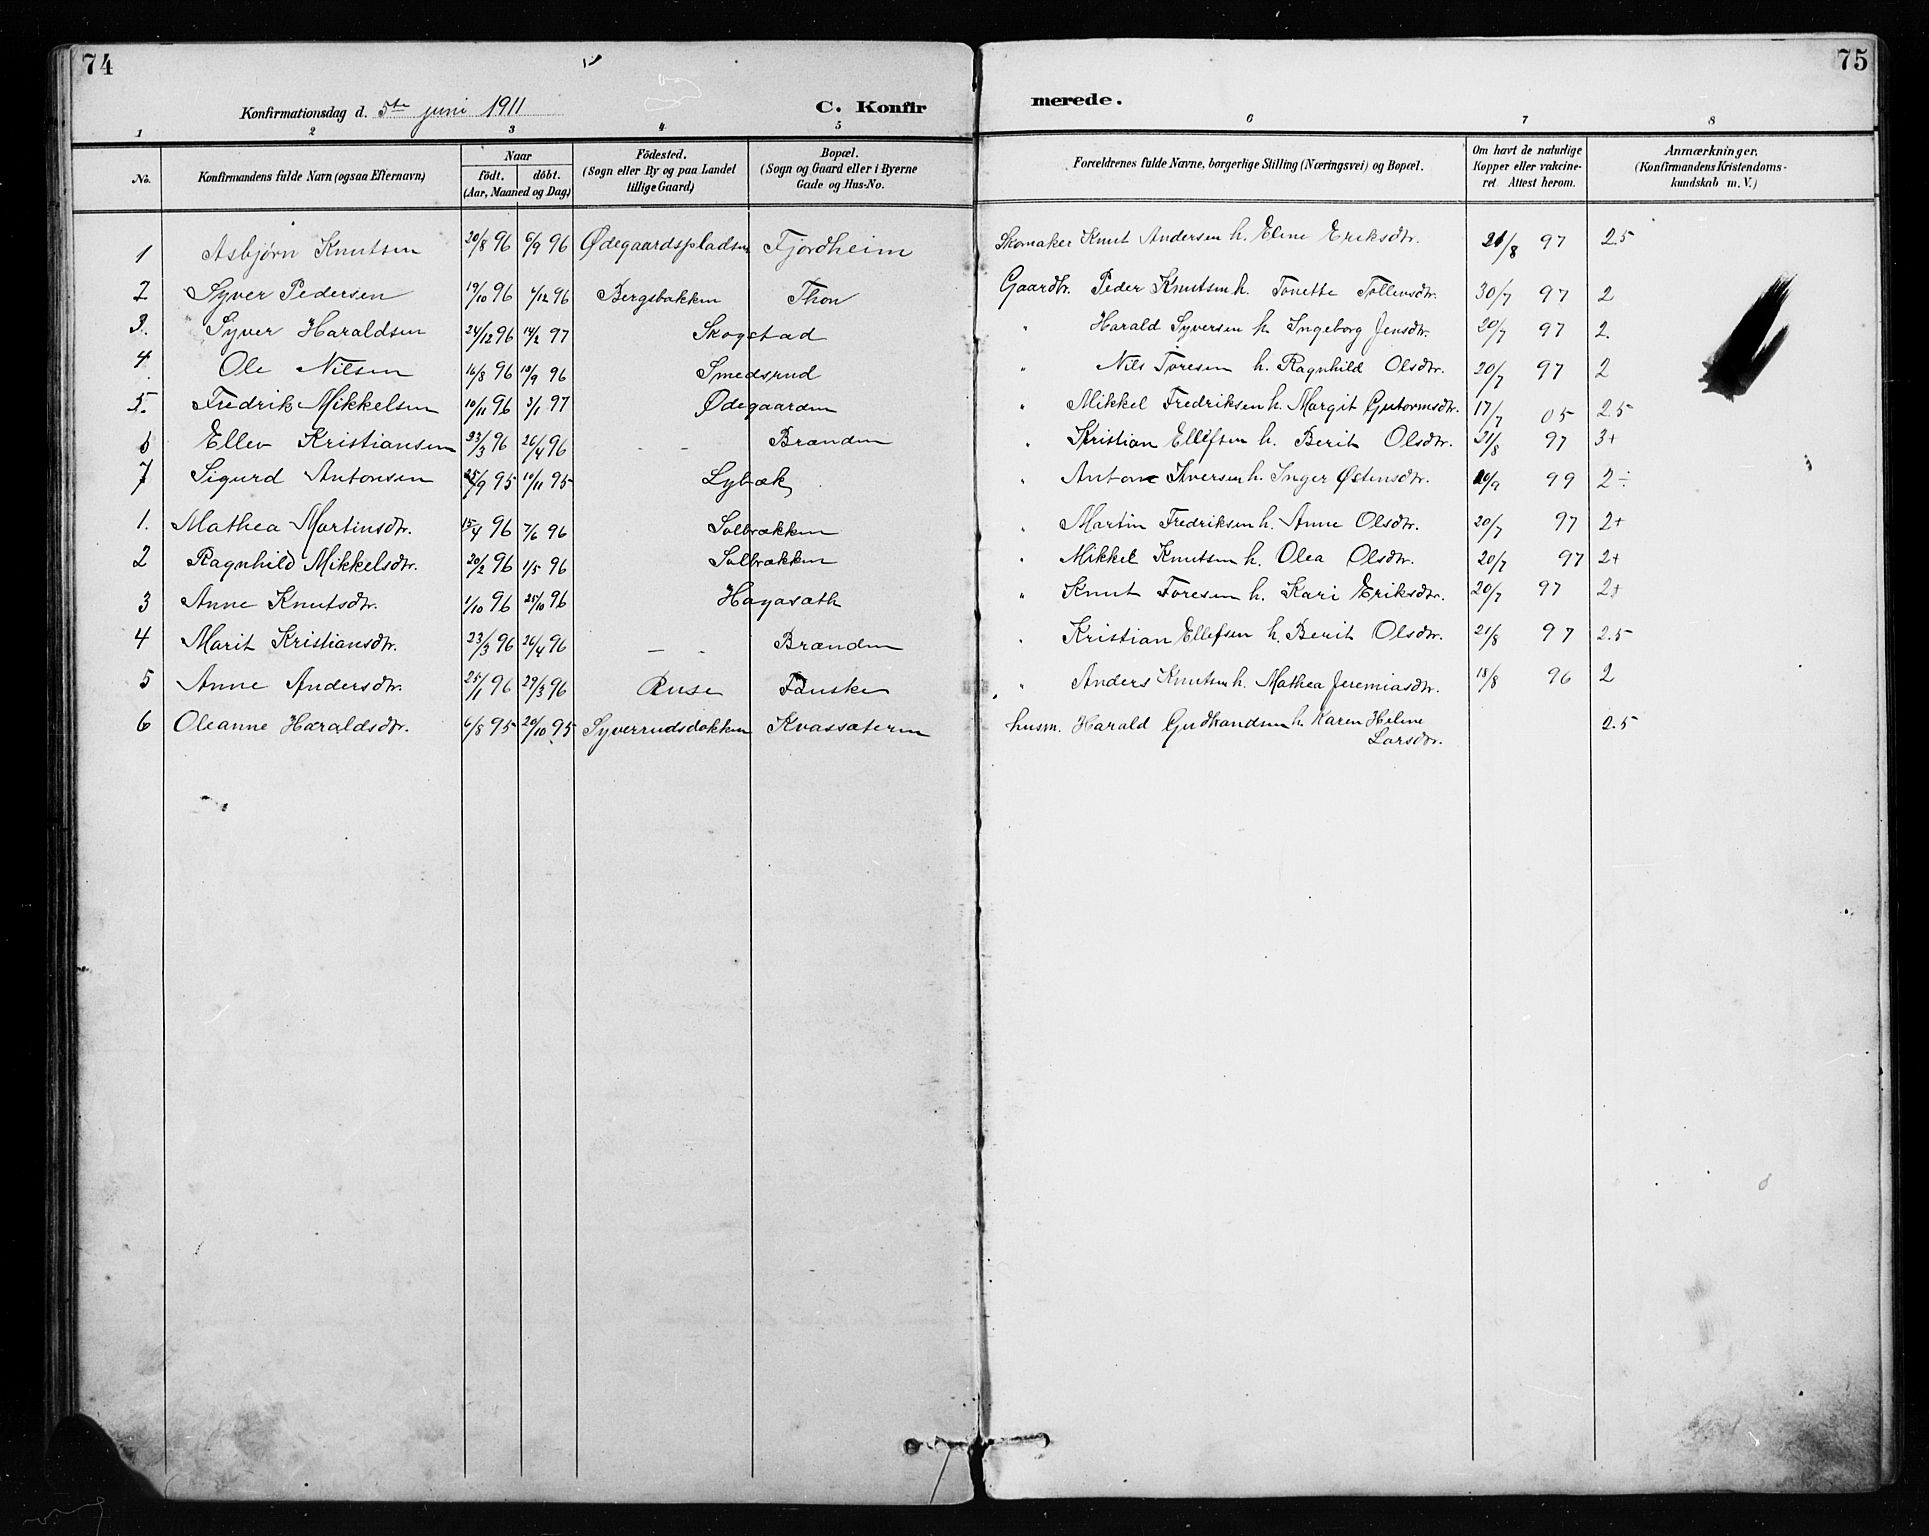 74
75
Konfirmationsdag d. 5te juni 1911
C. Konfir
merede.
1 2 3 4 5 6 7 8
No. Konfirmandens fulde Navn (ogsaa Efternavn) Naar födt. döbt. (Aar, Maaned og Dag) Födested. (Sogn eller By og paa Landet tillige Gaard) Bopæl. (Sogn og Gaard eller i Byerne Gade og Hus-No. Forældrenes fulde Navne, borgerlige Stilling (Næringsvei) og Bopæl. Om havt de naturlige Kopper eller vakcineret Attest herom. Anmærkninger, (Konfirmandens Kristendomskundskab m. V.)
1 Asbjørn Knutsen 20/8 96 6/9 96 Ødegaardspladsen Fjordheim Skomaker Knut Andersen h. Eline Eriksdtr. 21/8 97 2.5
2 Syver Pedersen 19/10 96 4/12 96 Bergsbakken Thon Gaardbr. Peder Knutsen h. Tonette Tollevsdtr. 30/7 97 2
3. Syver Haraldsen 24/12 96 14/2 97 Skogstad " Harald Syversen h. Ingeborg Jensdtr. 20/7 97 2.
4 Ole Nilsen 16/8 96 18/9 96 Smedsrud " Nils Toresen h. Ragnhild Olsdtr. 20/7 97 2
5. Fredrik Mikkelsen 10/11 96 3/1 97 Ødegaarden " Mikkel Fredriksen h. Margit Gutormsdtr. 17/7 05 2.5
6 Ellev Kristiansen 23/3 96 26/4 96 - - Brænden " Kristian Ellefsen h. Berit Olsdtr. 21/8 97 3+
7 Sigurd Antonsen 25/9 95 10/11 95 Lybæk " Anton Iversen h. Inger Østensdtr. 20/9 99 2÷
1. Mathea Martinsdtr. 15/4 96 7/6 96 Solbrækken " Martin Fredriksen h. Anne Olsdtr. 20/7 97 2+
2 Ragnhild Mikkelsdtr. 20/2 96 1/5 96 Solbrækken " Mikkel Knutsen h. Olea Olsdtr. 20/7 97 2+
3 Anne Knutsdtr. 1/10 96 25/10 96 Hagasæth " Knut Toresen h. Kari Eriksdtr. 20/7 97 2+
4 Marit Kristiansdtr. 23/3 96 26/4 96 - - Brænden " Kristian Ellefsen h. Berit Olsdtr. 21/8 97 2.5
5 Anne Andersdtr. 25/1 96 29/3 96 Ruse Fauske " Anders Knutsen h. Mathea Jeremiasdtr. 18/8 96 2
6 Oleanne Haraldsdtr. 6/8 95 20/10 95 Syverrudsbakken Kvassæteren husm. Harald Gudbrandsen h. Karen Heline Larsdtr. 2.5